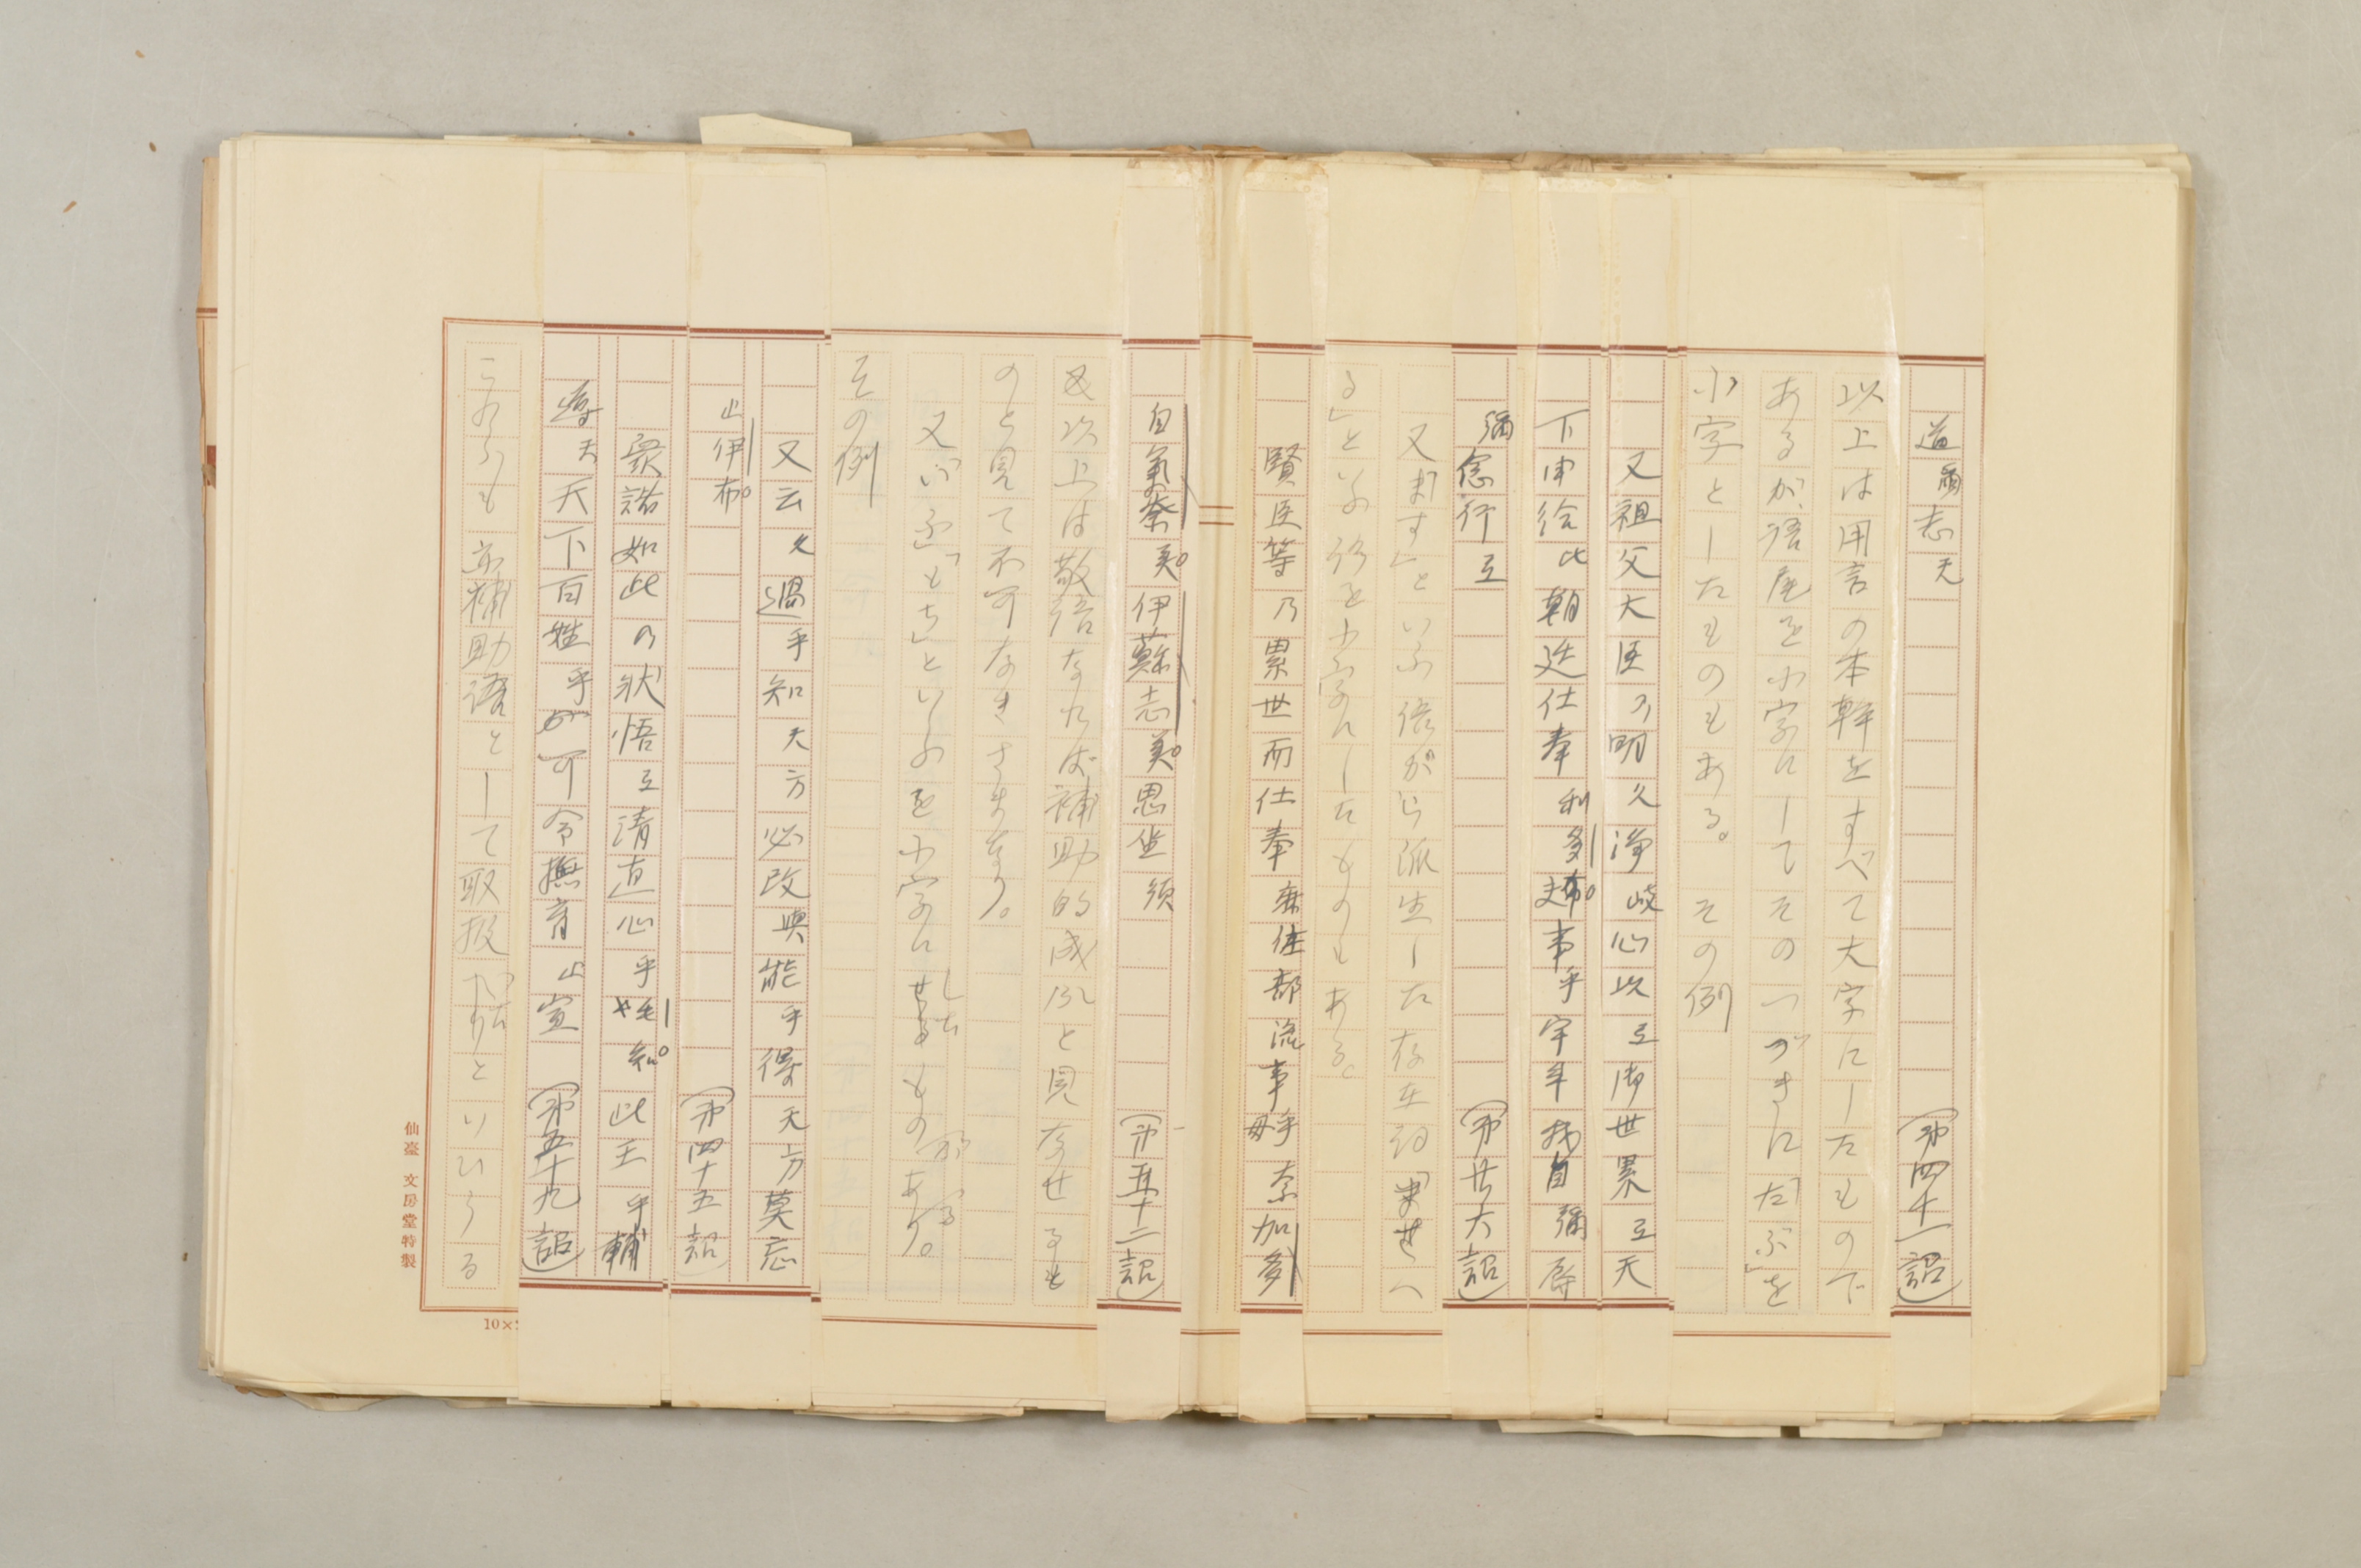 道爾志天 (第四十一詔)
以上は用言の本幹をすべて大字にしたものの下
あるが、語尾を小字にしてそのつづきに「たぶ」を
小字としたものもある。その例
又祖父大臣乃明久浄岐心以弖御世累弖天
下申給比朝廷仕奉利多夫布事乎宇牟我自彌辱
彌念行弖 (第廿六詔)
又「ます」といふ語から派生した存在詞「ませ
る」といふ語を小字にしたものもある。
賢臣等乃累世而仕奉麻佐部流事乎母奈加多
自氣奈美伊蘇志美思坐須 (第五十二詔)
又以上は敬語なれば補助的成分と見なせるも
のと見て不可なきさまなり。
又「いふ」「もち」といふを小字に もの あり。
その例
又云久過乎知天方必改與能乎得天方莫忘
止伊布 (第四十五詔)
衆諸如此乃状悟弖清直心乎毛知此王乎輔
導天天下百姓乎可令撫育止宣 (第五十九詔)
これらも亦補助語として取扱 といひうる
仙臺 文房堂特製